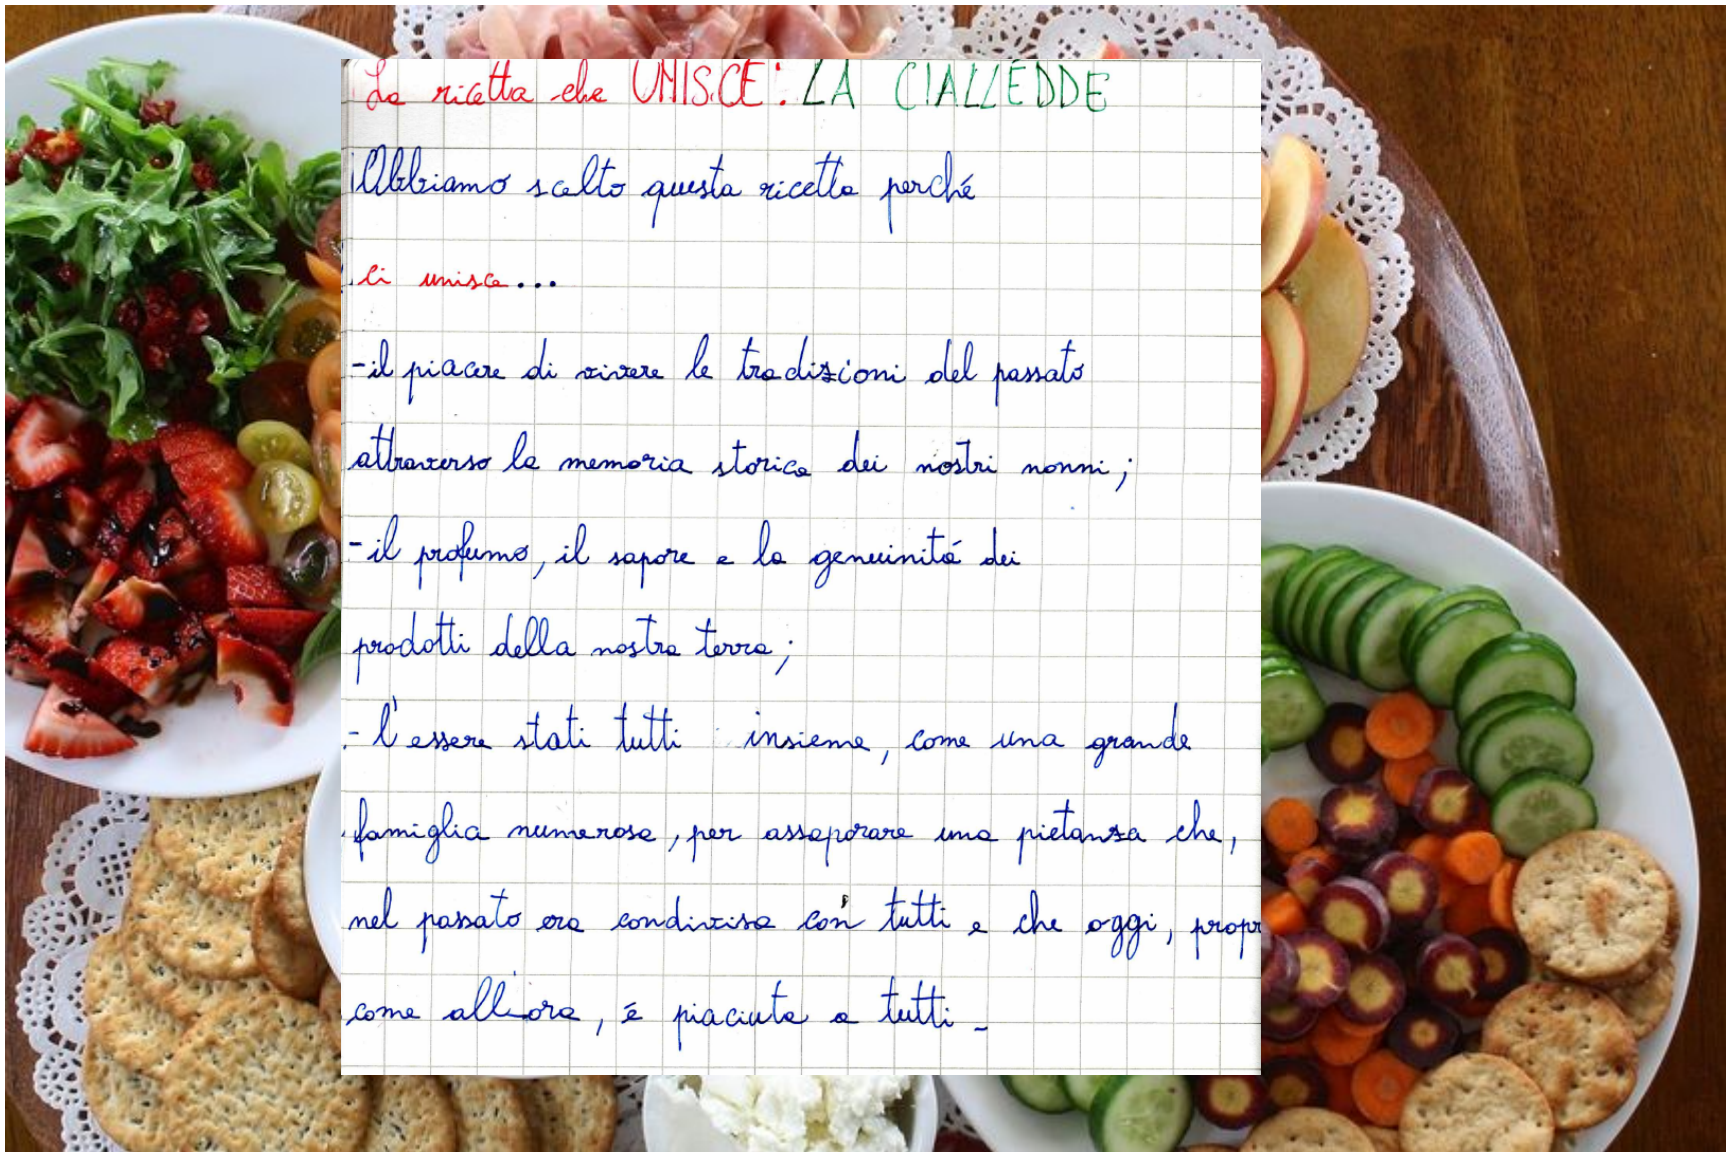 La ricetta che UNISCE: LA CIALLEDDE
Abbiamo scelto questa ricetta perché
ci unisce...
-il piacere di vivere le tradizioni del passato
attraverso la memoria storica dei nostri nonni;
-il profumo, il sapore e la genuinitá dei
prodotti della nostra terra;
- l'essere stati tutti insieme, come una grande
famiglia numerosa, per assaporare una pietanza che,
nel passato era condivisa con tutti e che oggi, propr
come all'ora, é piaciuta a tutti-